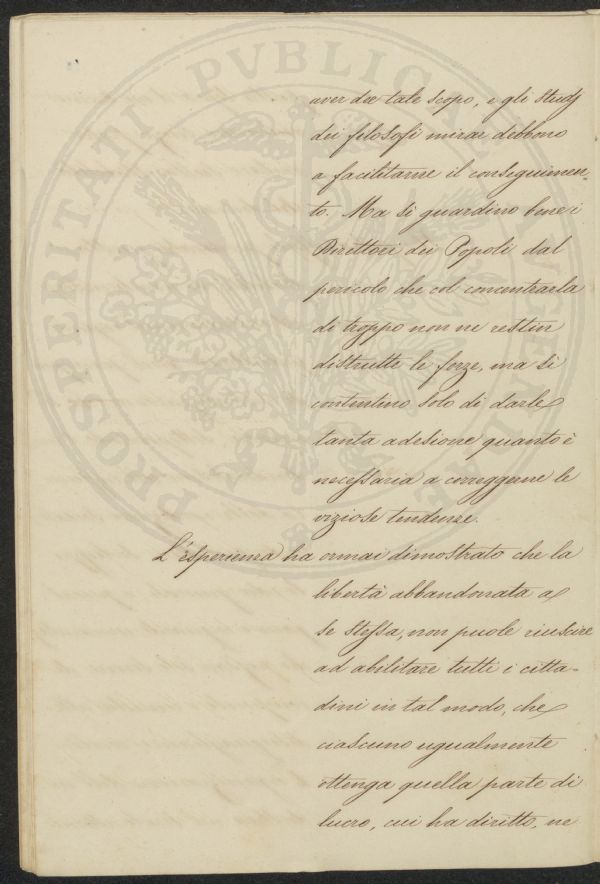 aver dee tale scopo, e gli Studj
dei filosofi mirar debbono
a facilitarne il conseguimen-
to. Ma si guardino bene i
Direttori dei Popoli dal
pericolo che col concentrarla
di troppo non ne restin
distrutte le forze, ma si
contentino solo di darle
tanta adesione quanto è
necessaria a correggerne le
viziose tendenze.
L'esperienza ha ormai dimostrato che la
libertà abbandonata a
se stessa, non puole riuscire
ad abilitare tutti i citta-
dini in tal modo, che
ciascuno ugualmente
ottenga quella parte di
lucro, cui ha diritto, ne
PROSPERITATI PVBLICAE AVGENDAE